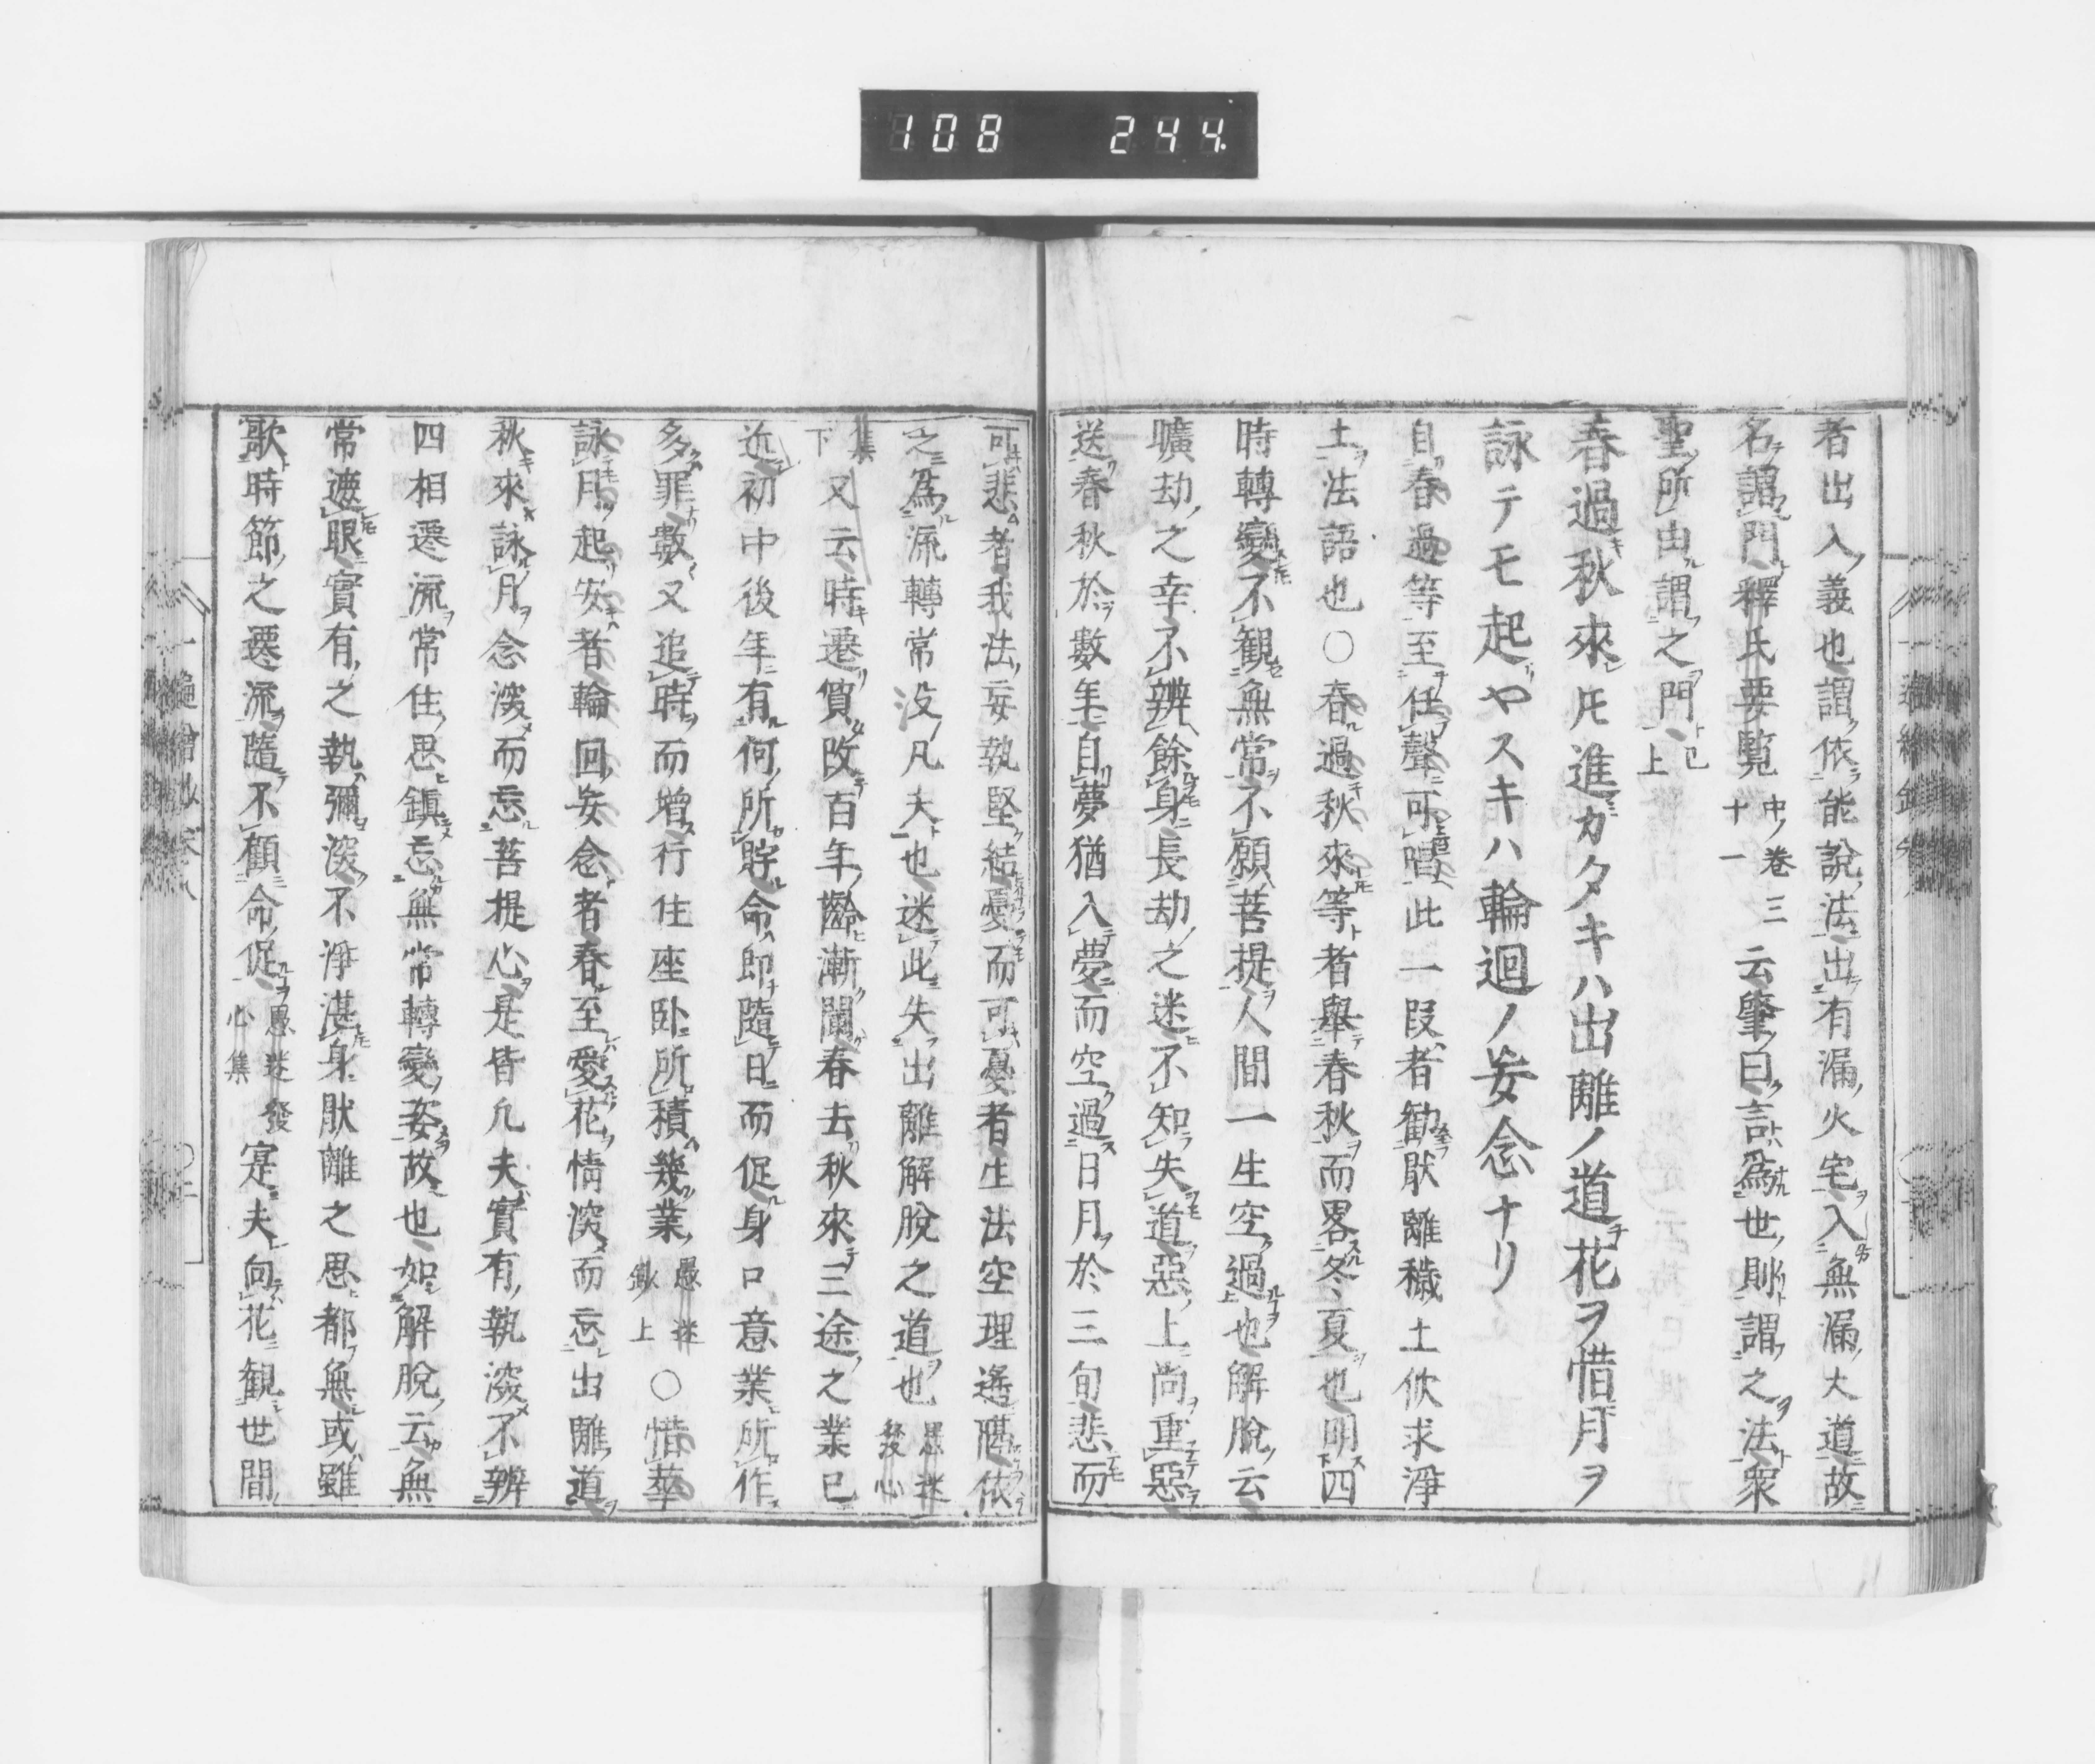 108 244.
者出入義也謂依能説法出有漏火宅入無漏大道故
名謂門釋氏要覧中巻三十一云肇曰言爲世則謂之法衆
聖所由謂之門已上
春過秋來ㇳモ進ミカタキハ出離ノ道花ヲ惜月ヲ
詠テモ起リヤスキハ輪廻ノ妄念ナリ
自春過等至任聲可唱此一段者勧猒離穢土欣求淨
土法語也○春過秋來等者舉春秋而畧冬夏也明四
時轉變不觀無常不願菩提人間一生空過也解脱云
曠劫之幸不辨餘身長劫之迷不知失道惡上尚重惡
送春秋於數年自夢猶入夢而空過日月於三旬悲而
可悲者我法妄執堅結憂而可憂者生法空理遙隔依
之爲流轉常没凡夫也迷此失出離解脱之道也愚迷發心
集下又云時遷質改百年齢漸闌春去秋來三途之業已
近初中後年有何所貯命即隨日而促身口意業所作
多罪數又追時而增行住座卧所積幾業愚迷鈔上○惜華
詠月起安者輪回妄念者春至愛花情深而忘出離道
秋來詠月念深而忘菩提心是皆凡夫實有執深不辨
四相遷流常住思鎭忘無常轉變姿故也如解脱云無
常遮眼實有之執彌深不淨湛身猒離之思都無或雖
歌時節之遷流隨不顧命促愚迷發心集寔夫向花觀世間